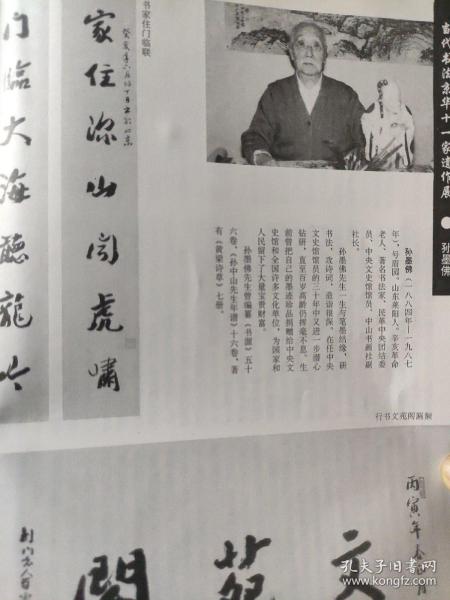 当代书法京华十一家遗作展 ● 孙墨佛
孙墨佛（一八八四年—一九八七
年），号眉园。山东莱阳人。辛亥革命
老人、著名书法家、民革中央团结委
员、中央文史馆馆员、中山书画社副
社长。
孙墨佛先生一生与笔墨结缘，研
书法，攻诗词，造诣很深，在任中央
文史馆馆员的三十年中又进一步潜心
钻研，直至百岁高龄仍挥毫不息。生
前曾把自己的墨迹珍品捐赠给中央文
史馆和全国许多文化单位，为国家和
人民留下了大量宝贵财富。
孙墨佛先生曾编纂《书源》五十
六卷、《孙中山先生年谱》十六卷，著
有《黄梁诗草》七册。
书家住门临联
家住深山闻虎啸
门临大海听龙吟
行书文苑阁匾额
丙寅年
文苑阁
孔夫子旧书网
book.kongfz.com